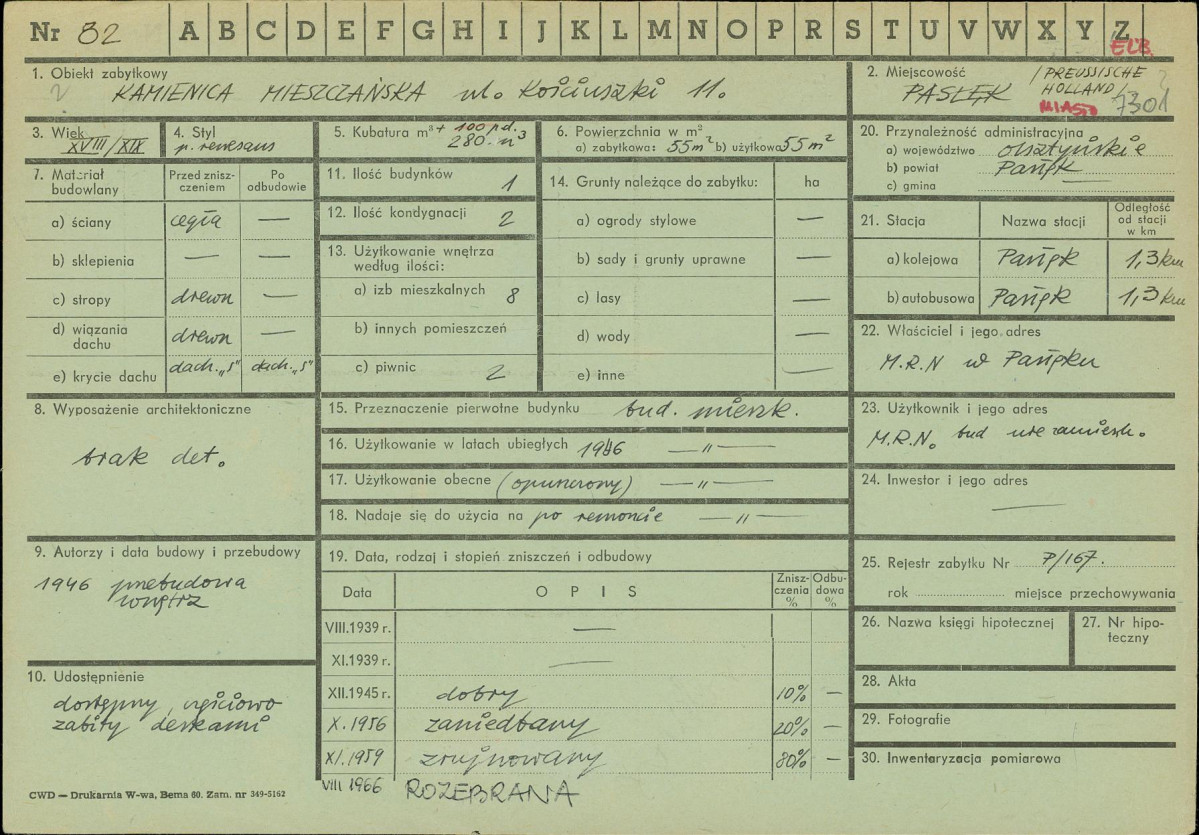 Nr 32 A B C D E F G H I J K L M N O P R S T U V W X Y Z
ELB.
1. Obiekt zabytkowy
KAMIENICA MIESZCZAŃSKA ul. Kościuszki 11.
2. Miejscowość
PASŁĘK /PREUSSISCHE HOLLAND/
MIASTO 7301
3. Wiek
XVIII/XIX
4. Styl
p. renesans
5. Kubatura m³ + 100 pd.
280. m³
6. Powierzchnia w m²
a) zabytkowa: 55 m² b) użytkowa 55 m²
20. Przynależność administracyjna
a) województwo olsztyńskie
b) powiat Pasłęk
c) gmina —
7. Materiał budowlany
Przed zniszczeniem
Po odbudowie
a) ściany cegła —
b) sklepienia — —
c) stropy drewn —
d) wiązania dachu drewn —
e) krycie dachu dach. „S" dach. „S"
11. Ilość budynków 1
12. Ilość kondygnacji 2
13. Użytkowanie wnętrza według ilości:
a) izb mieszkalnych 8
b) innych pomieszczeń
c) piwnic 2
14. Grunty należące do zabytku: ha
a) ogrody stylowe —
b) sady i grunty uprawne —
c) lasy —
d) wody —
e) inne —
21. Stacja
Nazwa stacji
Odległość od stacji w km
a) kolejowa Pasłęk 1,3 km
b) autobusowa Pasłęk 1,3 km
22. Właściciel i jego adres
M.R.N w Pasłęku
8. Wyposażenie architektoniczne
brak det.
15. Przeznaczenie pierwotne budynku bud. mieszk.
16. Użytkowanie w latach ubiegłych 1946 — „ —
17. Użytkowanie obecne (opuszczony) — „ —
18. Nadaje się do użycia na po remoncie — „ —
23. Użytkownik i jego adres
M.R.N. bud niezamieszk.
24. Inwestor i jego adres
—
9. Autorzy i data budowy i przebudowy
1946 przebudowa
wnętrz
10. Udostępnienie
dostępny, częściowo
zabity deskami
19. Data, rodzaj i stopień zniszczeń i odbudowy
Data
OPIS
Zniszczenia %
Odbudowa %
VIII.1939 r. —
XI.1939 r. —
XII.1945 r. dobry 10% —
X.1956 zaniedbany 20% —
XI.1959 zrujnowany 80% —
VIII 1966 ROZEBRANA
25. Rejestr zabytku Nr P/167.
rok miejsce przechowywania
26. Nazwa księgi hipotecznej
27. Nr hipoteczny
28. Akta
29. Fotografie
30. Inwentaryzacja pomiarowa
CWD — Drukarnia W-wa, Bema 60. Zam. nr 349-5162